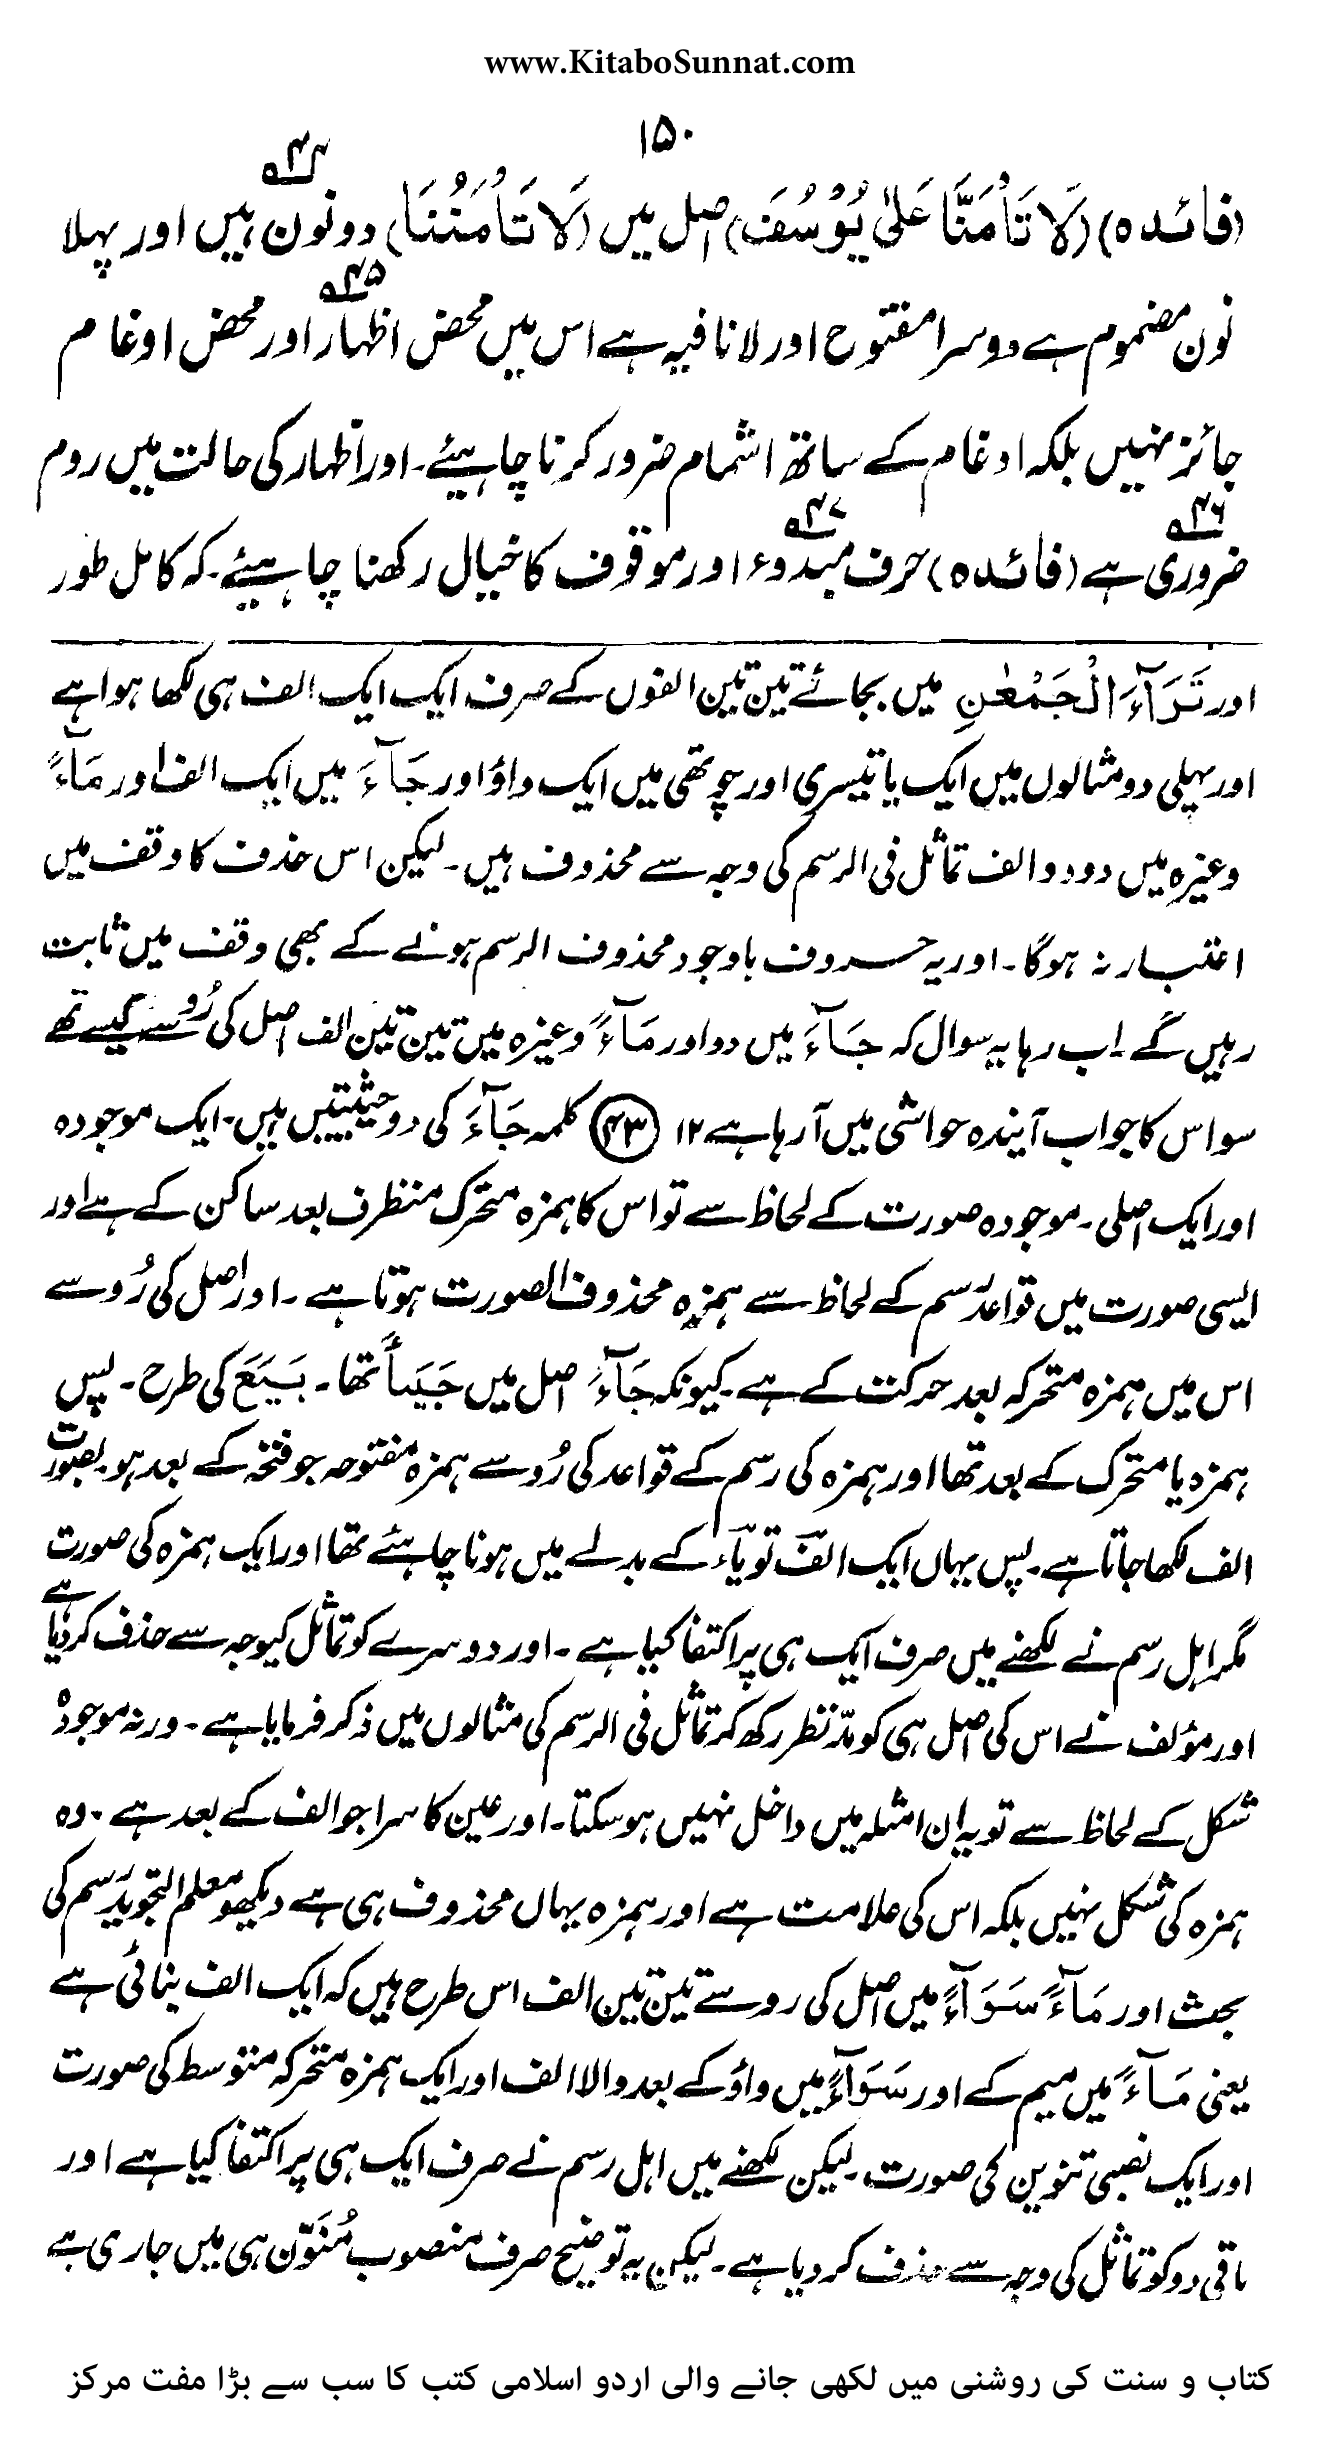 www.KitaboSunnat.com
۱۵۰
(فائدہ) (لَا تَأْمَنَّا عَلٰی یُوْسُفَ) اصل میں (لَا تَأْمَنُنَا) دو نون ہیں ۴۴ اور پہلا
نون مضموم ہے دوسرا مفتوح اور لا نافیہ ہے اس میں محض اظہار ۴۵ اور محض ادغام
جائز نہیں بلکہ ادغام کے ساتھ اشمام ضرور کرنا چاہیئے۔ اور اظہار کی حالت میں روم
ضروری ۴۶ ہے (فائدہ) حرف مبدوء ۴۷ اور موقوف کا خیال رکھنا چاہیئے۔ کہ کامل طور
اور تَرَآءَ الْجَمْعٰنِ میں بجائے تین تین الفوں کے صرف ایک ایک الف ہی لکھا ہوا ہے
اور پہلی دو مثالوں میں ایک یا تیسری اور چوتھی میں ایک واؤ اور جَآءَ میں ایک الف اور مَآءً
وغیرہ میں دو دو الف تماثل فی الرسم کی وجہ سے محذوف ہیں۔ لیکن اس حذف کا وقف میں
اعتبار نہ ہوگا۔ اور یہ حروف باوجود محذوف الرسم ہونے کے بھی وقف میں ثابت
رہیں گے۔ اب رہا یہ سوال کہ جَآءَ میں دو اور مَآءً وغیرہ میں تین تین الف اصل کی رُو سے کیسے تھے
سو اس کا جواب آیندہ حواشی میں آ رہا ہے ۱۲ (۴۳) کلمہ جَآءَ کی دو حیثیتیں ہیں۔ ایک موجودہ
اور ایک اصلی۔ موجودہ صورت کے لحاظ سے تو اس کا ہمزہ متحرک متطرف بعد ساکن کے ہے اور
ایسی صورت میں قواعد رسم کے لحاظ سے ہمزہ محذوف الصورت ہوتا ہے۔ اور اصل کی رُو سے
اس میں ہمزہ متحرکہ بعد حرکت کے ہے۔ کیونکہ جَآءَ اصل میں جَیَأَ تھا۔ بَیَعَ کی طرح۔ پس
ہمزہ یا متحرک کے بعد تھا اور ہمزہ کی رسم کے قواعد کی رُو سے ہمزہ مفتوحہ جو فتحہ کے بعد ہو۔ بصورت
الف لکھا جاتا ہے۔ پس یہاں ایک الف تو یاء کے بدلے میں ہونا چاہئے تھا اور ایک ہمزہ کی صورت
مگر اہل رسم نے لکھنے میں صرف ایک ہی پر اکتفا کیا ہے۔ اور دوسرے کو تماثل کیوجہ سے حذف کر دیا ہے
اور مؤلف نے اس کی اصل ہی کو مدّ نظر رکھ کر تماثل فی الرسم کی مثالوں میں ذکر فرمایا ہے۔ ورنہ موجودہ
شکل کے لحاظ سے تو یہ ان امثلہ میں داخل نہیں ہو سکتا۔ اور عین کا سرا جو الف کے بعد ہے۔ وہ
ہمزہ کی شکل نہیں بلکہ اس کی علامت ہے اور ہمزہ یہاں محذوف ہی ہے دیکھو معلم التجوید رسم کی
بحث اور مَآءً سَوَآءً میں اصل کی رو سے تین تین الف اس طرح ہیں کہ ایک الف بنائی ہے
یعنی مَآءً میں میم کے اور سَوَآءً میں واؤ کے بعد والا الف اور ایک ہمزہ متحرکہ متوسط کی صورت
اور ایک نصبی تنوین کی صورت۔ لیکن لکھنے میں اہل رسم نے صرف ایک ہی پر اکتفا کیا ہے اور
باقی دو کو تماثل کی وجہ سے حذف کر دیا ہے۔ لیکن یہ توضیح صرف منصوب مُنَوّن ہی میں جاری ہے
کتاب و سنت کی روشنی میں لکھی جانے والی اردو اسلامی کتب کا سب سے بڑا مفت مرکز